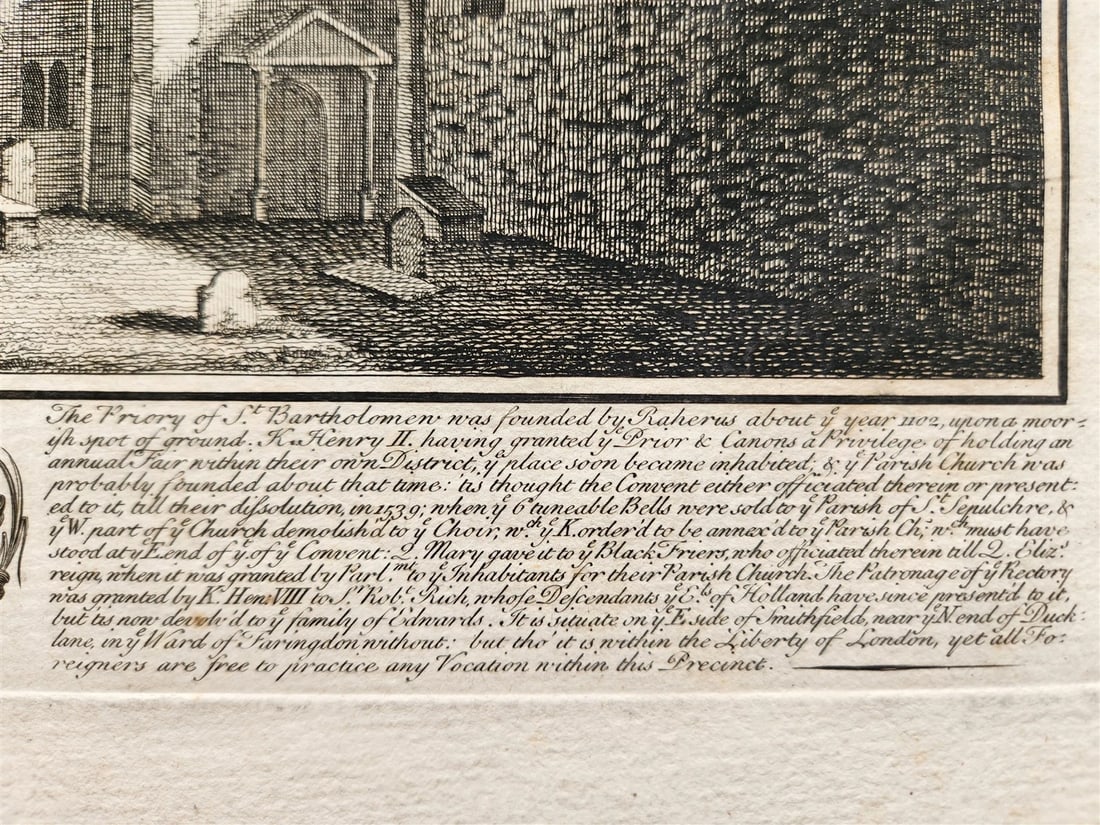 The Priory of S.t Bartholomew was founded by Raherus about y.e year 1102, upon a moor-
ish spot of ground. K. Henry II. having granted y.e Prior & Canons a Privilege of holding an
annual Fair within their own District, y.e place soon became inhabited; & y.e Parish Church was
probably founded about that time: tis thought the Convent either officiated therein or present:
ed to it, till their dissolution, in 1539; when y.e 6 tuneable Bells were sold to y.e Parish of S.t Sepulchre, &
y.e W. part of y.e Church demolish'd to y.e Choir, w.ch y.e K. order'd to be annex'd to y.e Parish Ch; w.ch must have
stood at y.e E. end of y.t of y.e Convent: Q. Mary gave it to y.e Black Friers, who officiated therein till Q. Eliz.s
reign, when it was granted by Parl.mt to y.e Inhabitants for their Parish Church. The Patronage of y.e Rectory
was granted by K. Hen: VIII to S.r Rob.t Rich, whose Descendants y.e E.ls of Holland have since present'd to it,
but tis now devolv'd to y.e family of Edwards. It is situate on y.e E. side of Smithfield, near y.e N. end of Duck-
lane, in y.e Ward of Faringdon without: but tho' it is within the Liberty of London, yet all Fo-
reigners are free to practice any Vocation within this Precinct.